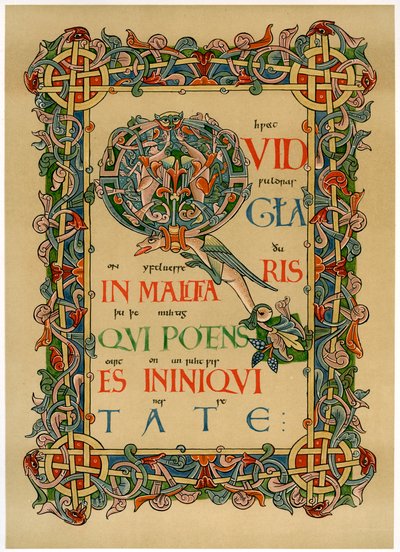 hƿæt
QVID
ƿuldras
GLA
ðu
RIS
on yfelnesse
IN MALITA
þu þe mihtig
QVI POTENS
eart on unrihtƿis
ES ININIQVI
nes se
TATE: